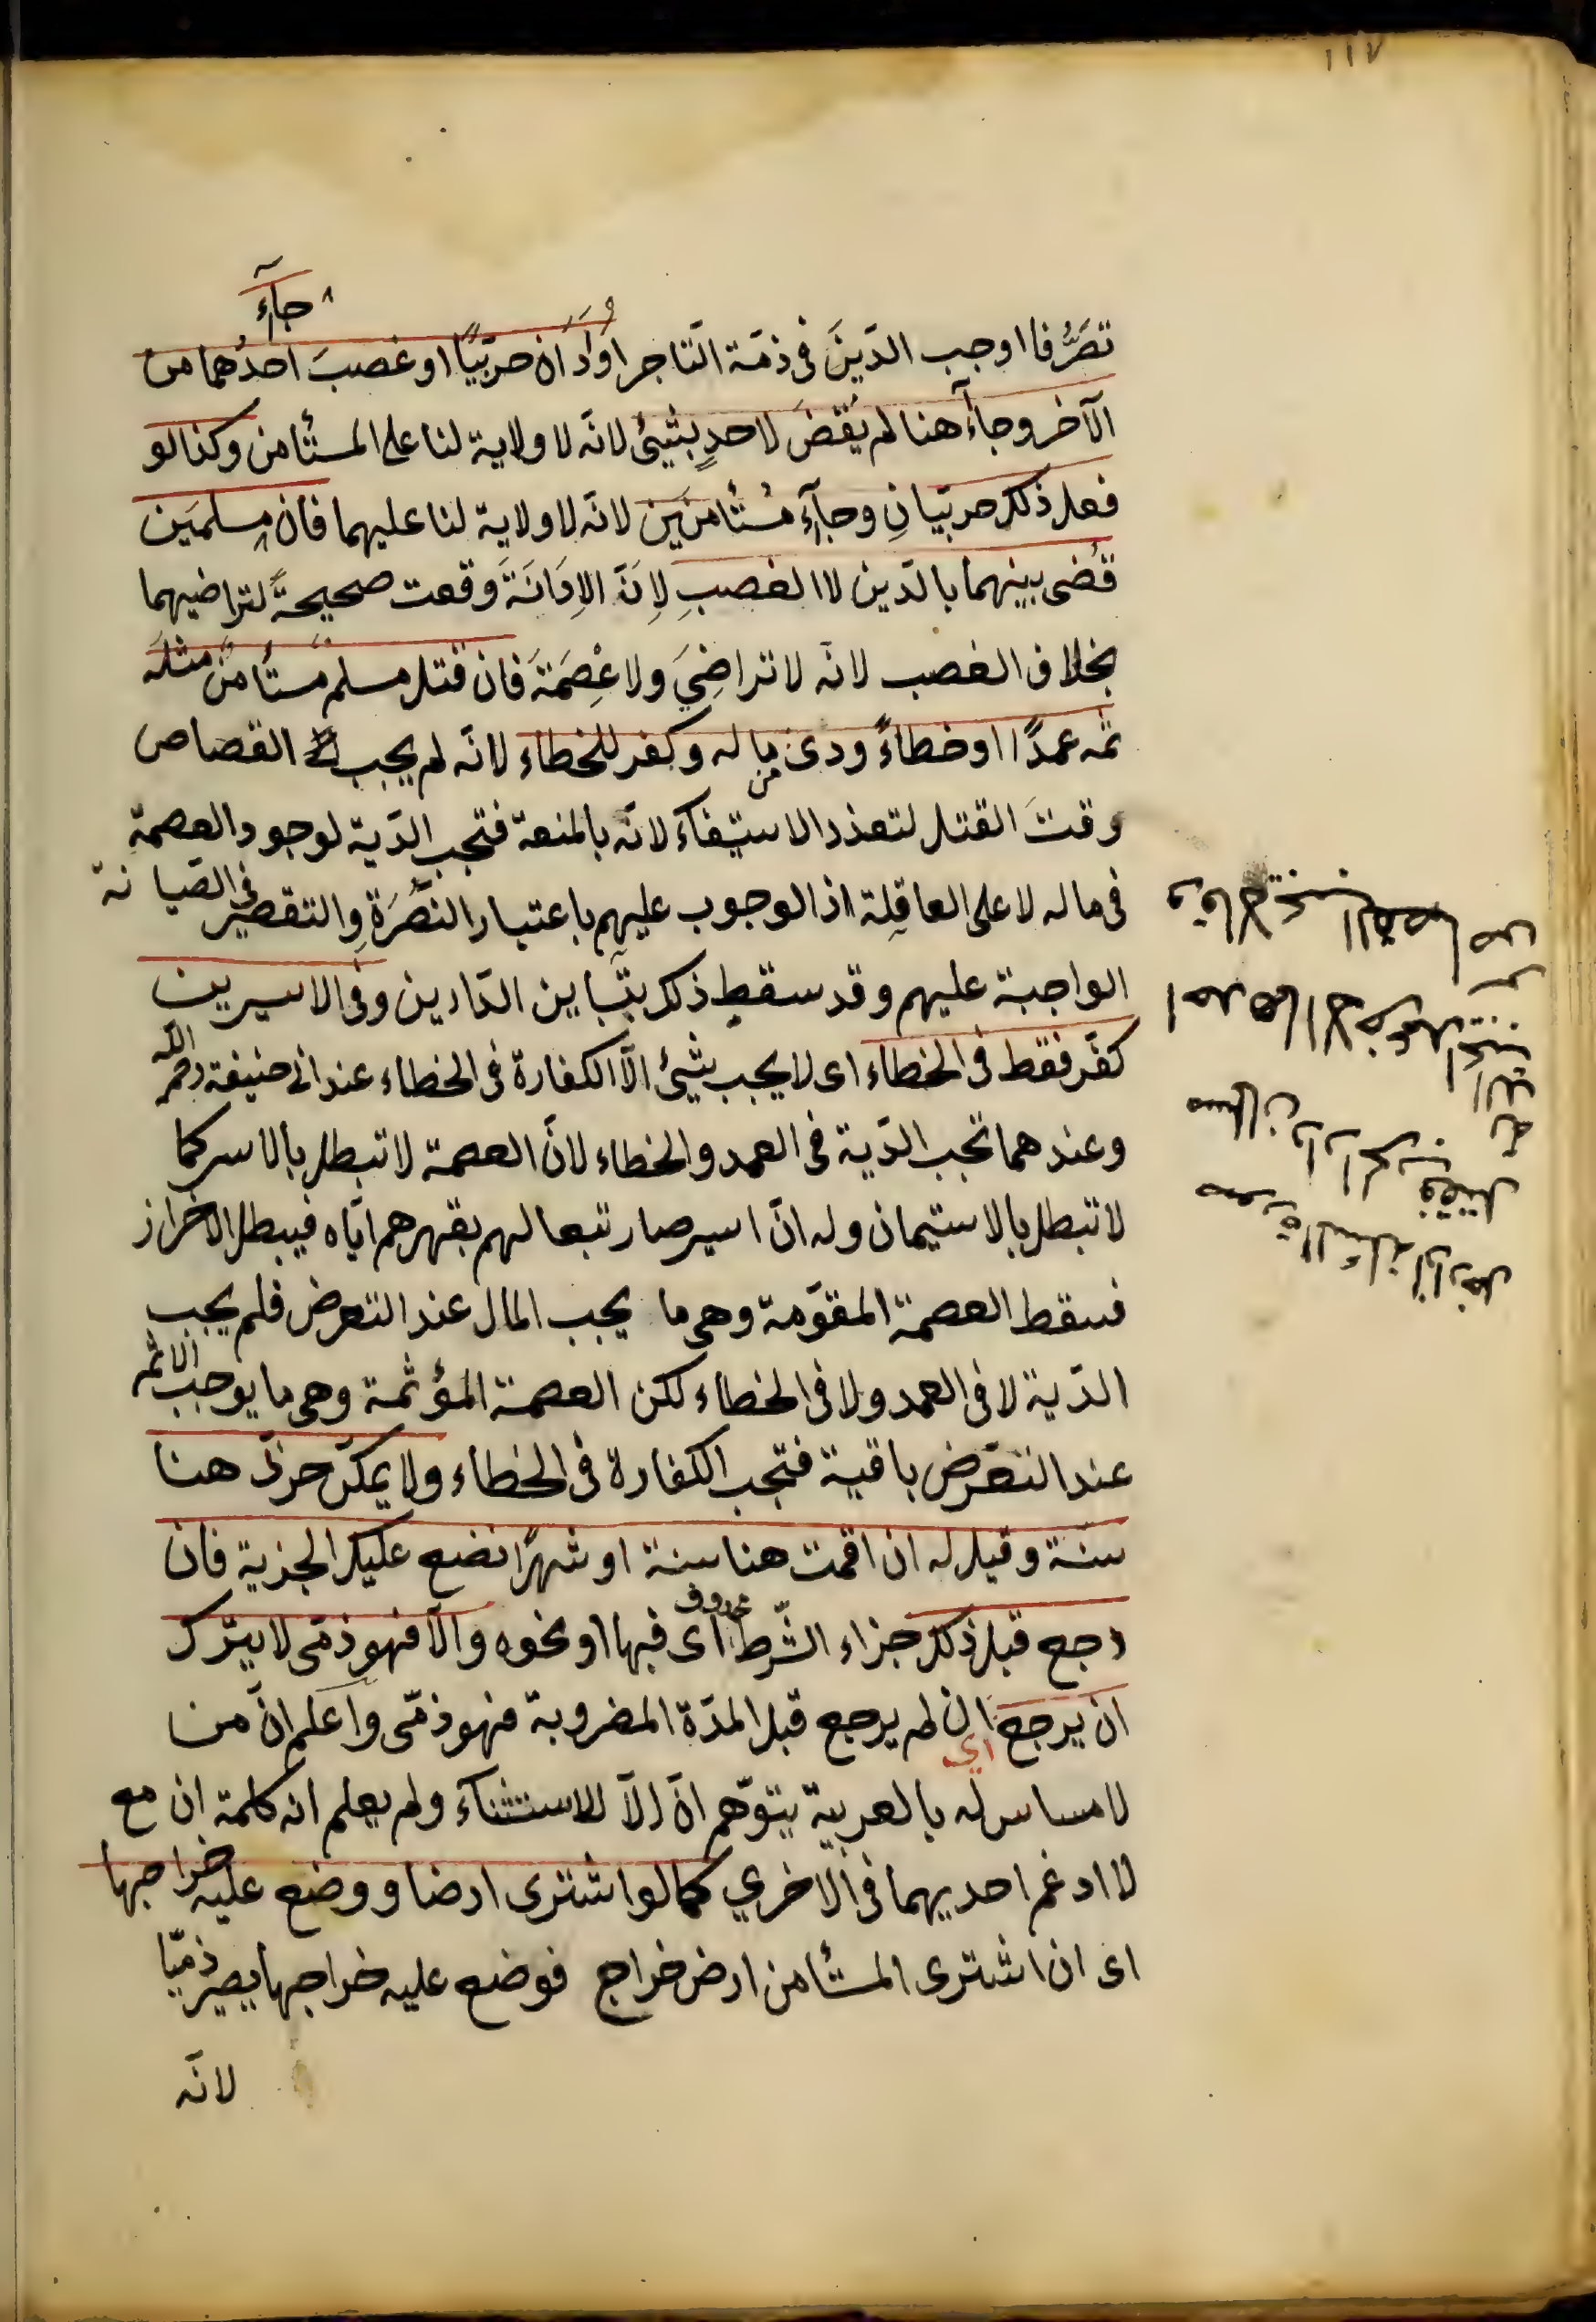 ١١٧
تصَرُّفا اوجب الدّينَ فى ذمّة التّاجر اَوْاَدَانَ حربّيًا او غصبَ احدُهما من
الآخر وجاآ هنا لم يُقْضَ لاحدٍ بشيئ لانّه لا ولاية لنا على المستأمن وكذا لو
فعل ذلك حربّيانِ وجآءٓ مُستأمنَين لانّه لا ولاية لنا عليهما فان جآءٓ مسلمَين
قُضى بينهما بالدّين لا الغصبِ لِانّ الاِدَانَةَ وقعت صحيحةً لتراضيهما
بخلاف الغصب لانّه لا تراضِيَ ولا عِصَمَةَ فان قتل مسلم مُستأمنٌ مثلَه
ثمه عمدًا او خطاءً ودى من ماله وكفر للخطاء لانّه لم يجب القصاص
وقتَ القتل لتعذر الاستيفآء لانّه بالمنعة فتجب الدّية لوجود العصمة
فى ماله لا على العاقِلة اذ الوجوب عليهم باعتبار النصَّرَةِ والتقصير فى الصّيانة
الواجبة عليهم وقد سقط ذلك بتباين الدّارين وفى الاسيرين
كفّر فقط فى الخطاء اى لا يجب شيئ الّا الكفارة فى الخطاء عند ابى حنيفة رحمه الله
وعندهما تجب الدّية فى العمد والخطاء لانّ العصمة لا تبطل بالاسر كما
لا تبطل بالاستيمان وله انّ اسير صار تبعا لهم بقهرهم ايّاه فيبطل الاحراز
فسقط العصمة المقوّمة وهى ما يجب المال عند التعرض فلم يجب
الدّية لا فى العمد ولا فى الخطاء لكن العصمة المؤثمة وهى ما يوجب الاثم
عند التعرّض باقية فتجب الكفارة فى الخطاء ولا يمكّن حربّى هنا
سنة وقيل له ان اقمت هنا سنة او شهرًا نضع عليك الجزية فان
رجع قبل ذلك جزاء الشّرط محذوف اى فبها او نحوه والّا فهو ذمّى لا يترك
ان يرجع اي ان لم يرجع قبل المدّة المضروبة فهو ذمّى واعلم انّ من
لا مساس له بالعربية يتوّهم انّ الّا للاستثنآء ولم يعلم انه كلمة ان مع
لا ادغم احديهما فى الاخري كما لو اشترى ارضا ووضع عليه خراجها
اى ان اشترى المستأمن ارض خراج فوضع عليه خراجها يصير ذميّا
لانّه